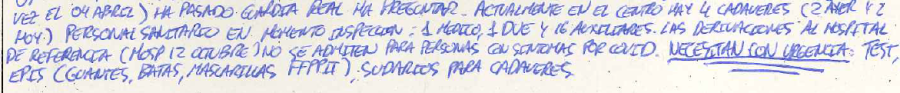 VEZ EL 04 ABRIL) HA PASADO GUARDIA REAL HA PREGUNTAR. ACTUALMENTE EN EL CENTRO HAY 4 CADAVERES (2 AYER Y 2
HOY.) PERSONAL SANITARIO EN MOMENTO INSPECCION: 1 MEDICO, 1 DUE Y 16 AUXILIARES. LAS DERIVACIONES AL HOSPITAL
DE REFERENCIA (HOSP 12 OCTUBRE) NO SE ADMITEN PARA PERSONAS CON SINTOMAS POR COVID. NECESITAN CON URGENCIA: TEST,
EPIS (GUANTES, BATAS, MASCARILLAS FFPPII), SUDARIOS PARA CADAVERES